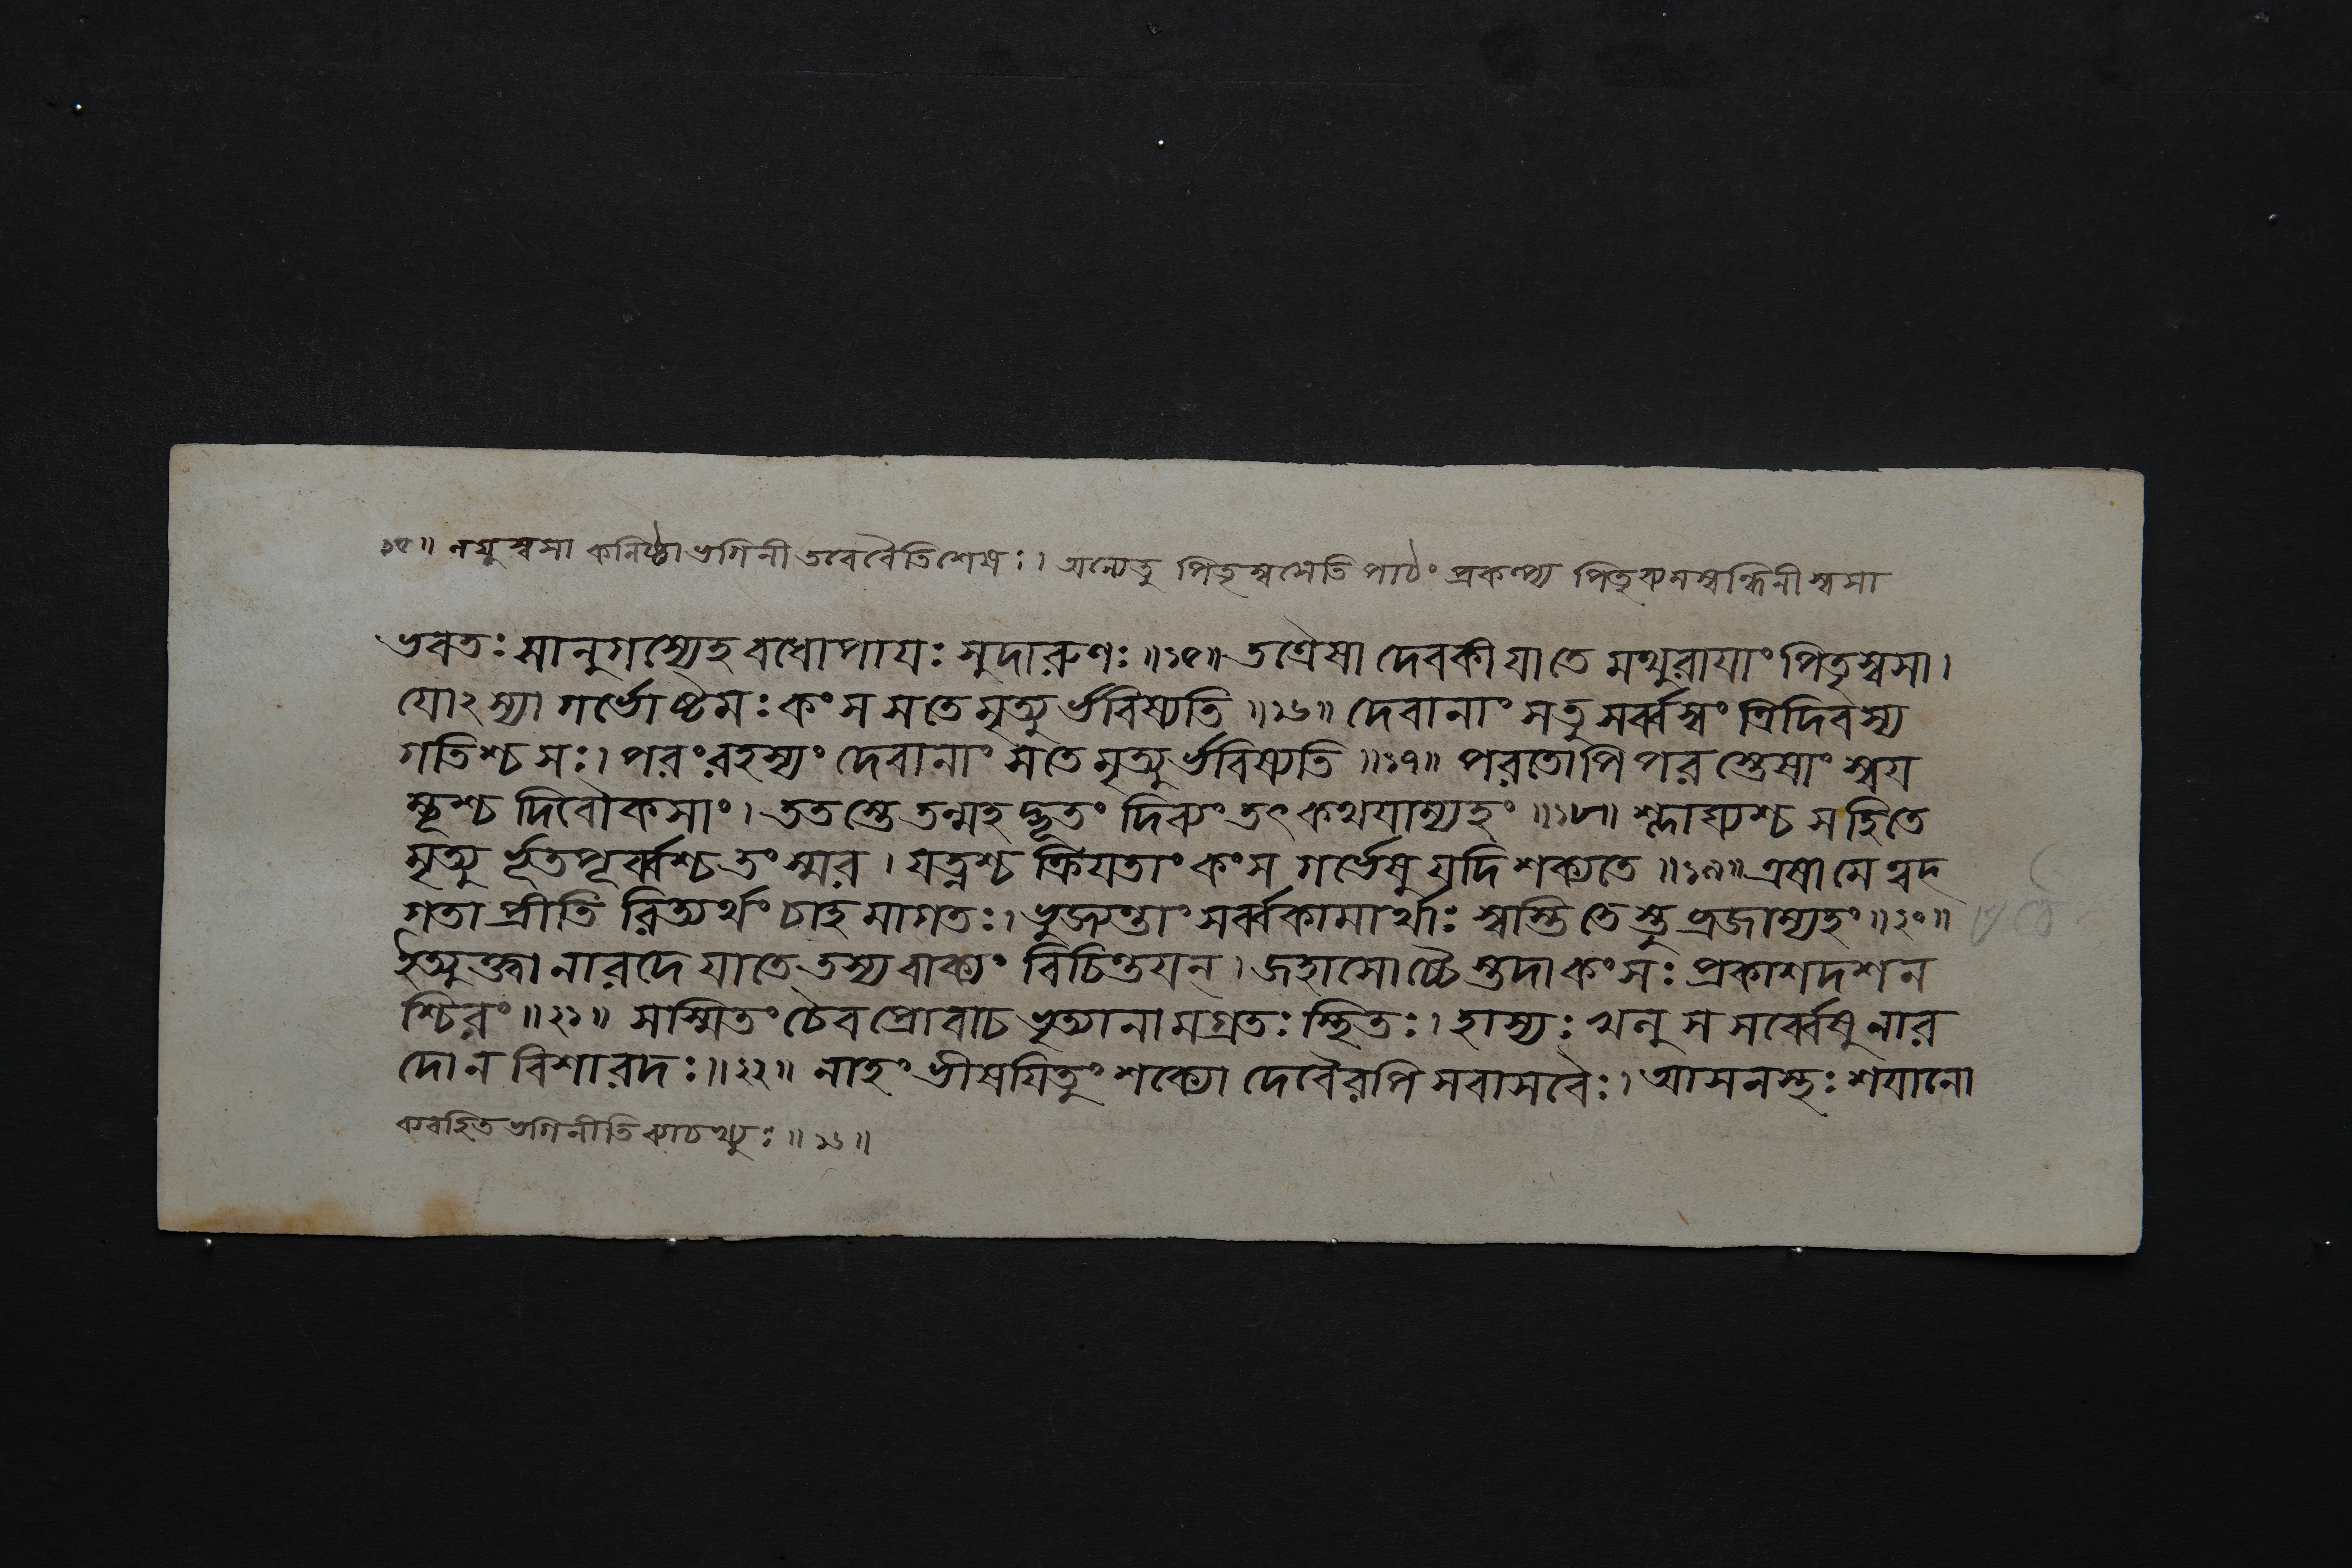 ১৫॥ লঘুস্বসা কনিষ্ঠা ভগিনী তবেবৈতিশেষঃ। অন্যেতু পিতৃস্বসেতি পাঠং প্রকল্প্য পিতৃব্যসম্বন্ধিনীস্বসা
ভবতঃ সানুগস্যেহ বধোপাযঃ সুদারুণঃ॥১৫॥ তত্রৈষা দেবকী যাতে মথুরাযাং পিতৃস্বসা।
যোঽস্যা গর্ভোষ্টমঃ কংস সতে মৃত্যুর্ভবিষ্যতি॥১৬॥ দেবানাং সতু সর্ব্বস্বং ত্রিদিবস্য
গতিশ্চ সঃ। পরংরহস্যং দেবানাং সতে মৃত্যুর্ভবিষ্যতি॥১৭॥ পরতোপি পরস্তেষাং স্বয
ম্ভূশ্চ দিবৌকসাং। ততস্তে তন্মহদ্ভূতং দিব্যং তৎ কথযাম্যহং॥১৮॥ শ্লাঘ্যশ্চ সহিতে
মৃত্যুর্ভূতপূর্ব্বশ্চ তং স্মর। যত্নশ্চ ক্রিযতাং কংস গর্ভেষু যদি শক্যতে॥১৯॥ এষা মে ত্বদ্
গতা প্রীতি রিত্যর্থং চাহমাগতঃ। ভুজ্যন্তাং সর্ব্বকামার্থাঃ স্বস্তি তেস্তু ব্রজাম্যহং॥২০॥
ইত্যুক্ত্বা নারদে যাতে তস্য বাক্যং বিচিন্তযন্। জহাসোচ্চৈস্তদা কংসঃ প্রকাশদশন
শ্চিরং॥২১॥ সস্মিতং চৈব প্রোবাচ ভৃত্যানামগ্রতঃ স্থিতঃ। হাস্যঃ খলু স সর্ব্বেষু নার
দো ন বিশারদঃ॥২২॥ নাহং ভীষযিতুং শক্যো দেবৈরপি সবাসবৈঃ। আসনস্থঃ শযানো
ব্যবহিত ভগিনীতি ব্যাচখ্যুঃ॥১৬॥